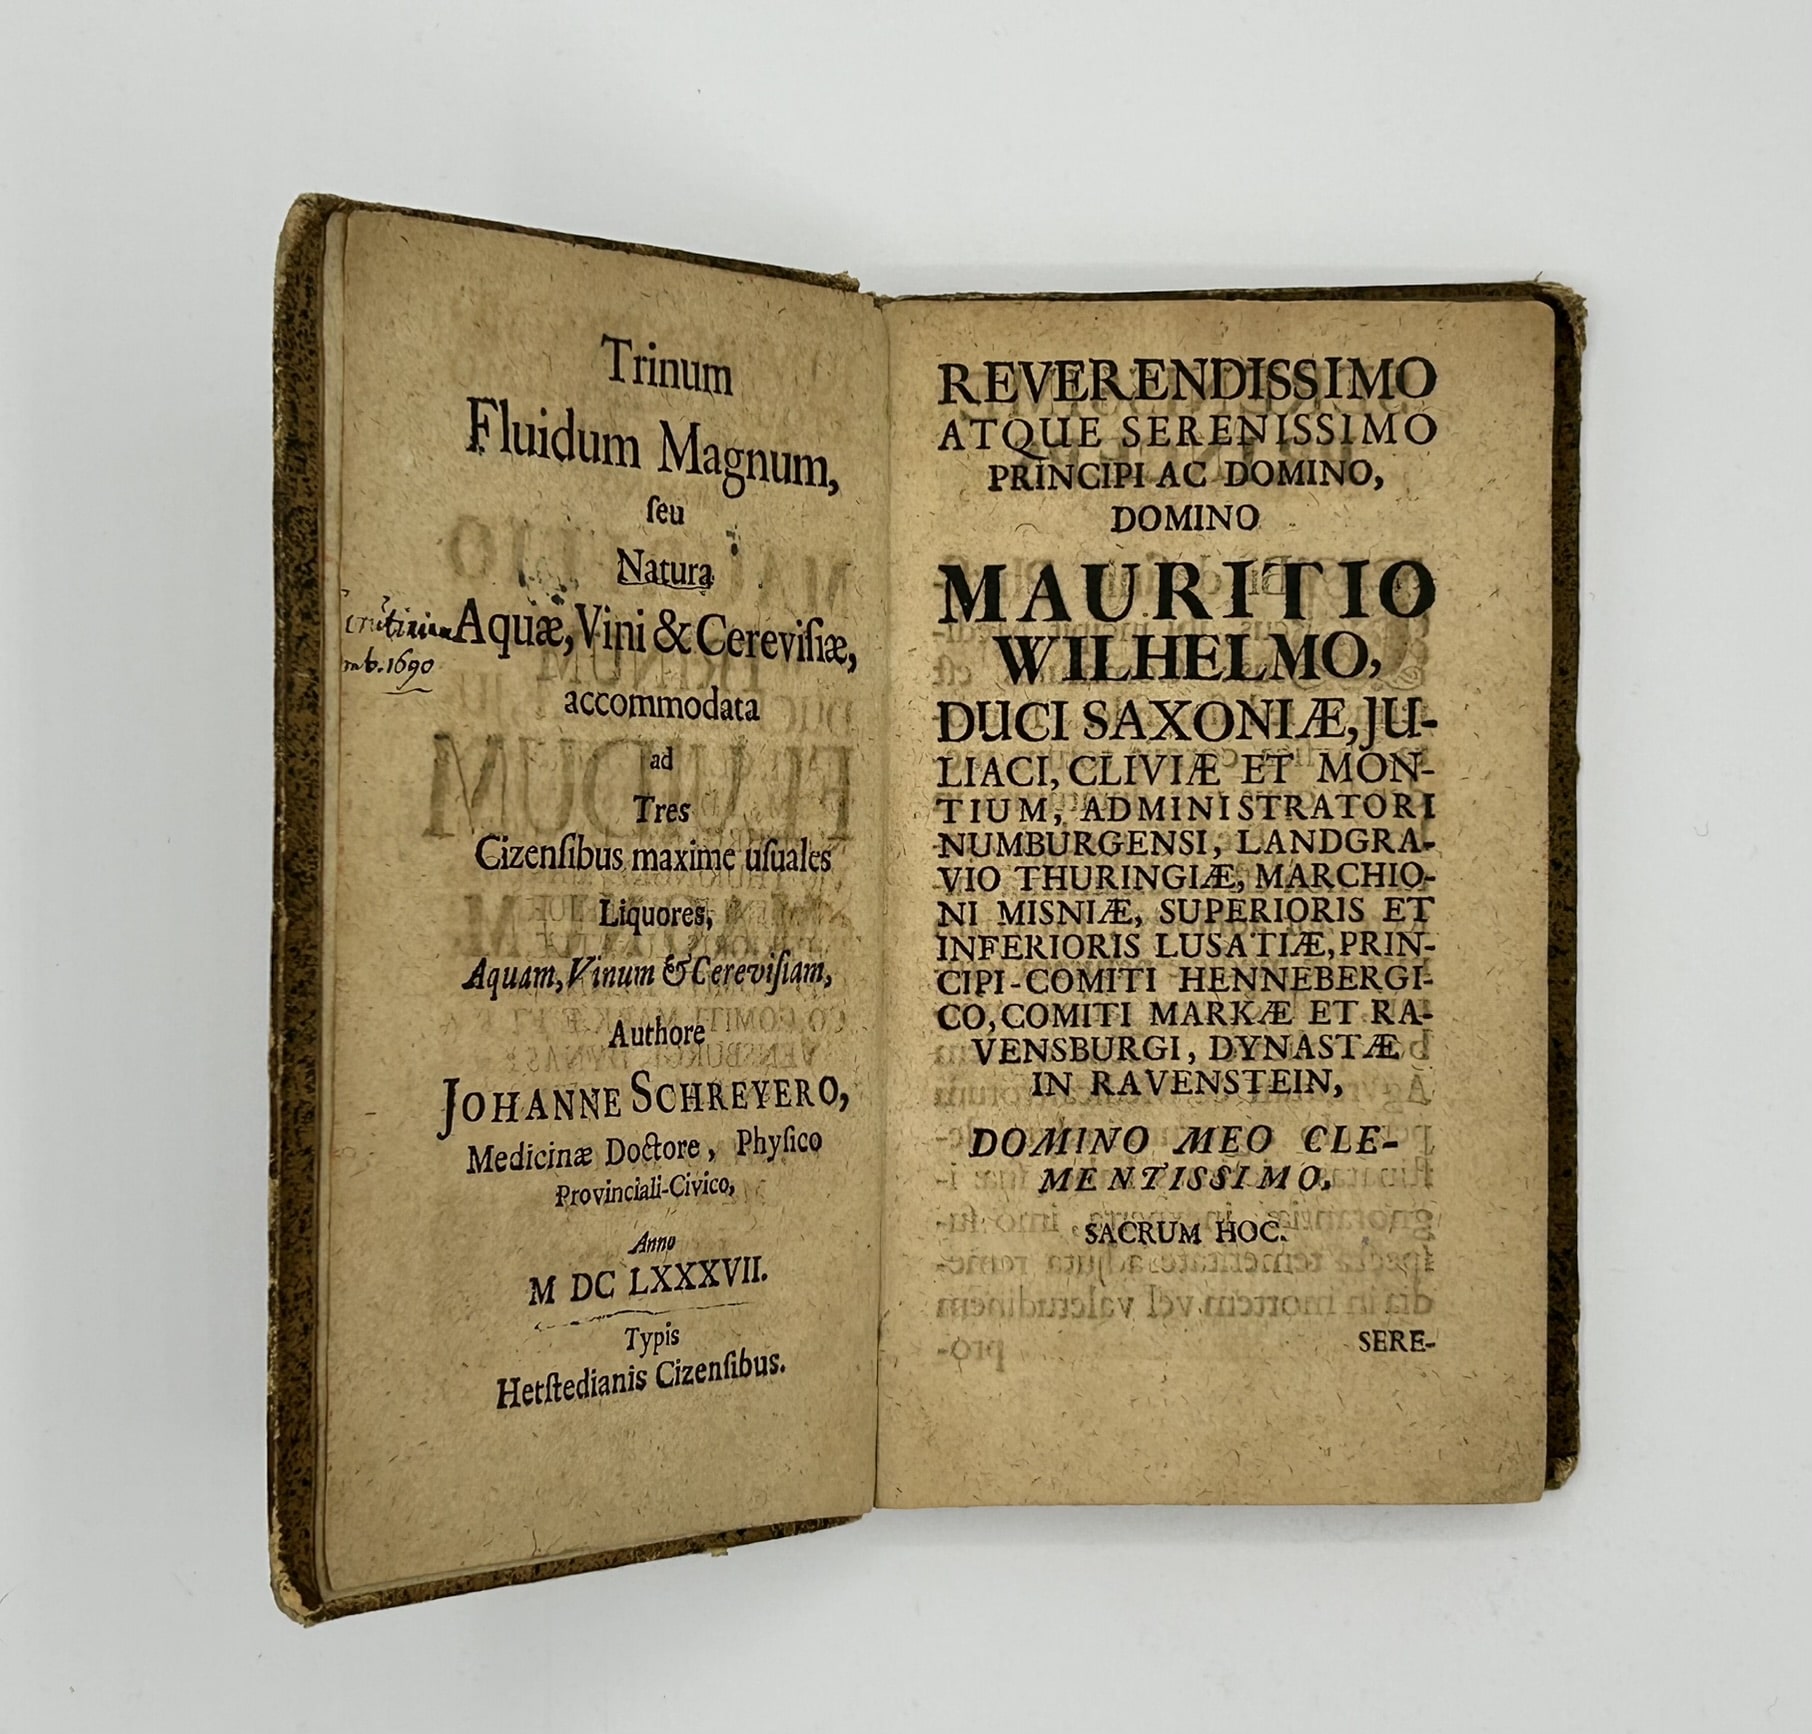 Trinum
Fluidum Magnum,
ſeu
Natura
Aquæ, Vini & Cereviſiæ,
accommodata
ad
Tres
Cizenſibus maxime uſuales
Liquores,
Aquam, Vinum & Cereviſiam,
Authore
JOHANNE SCHREYERO,
Medicinæ Doctore, Phyſico
Provinciali-Civico,
Anno
M DC LXXXVII.
Typis
Hetſtedianis Cizenſibus.
mb. 1690
REVERENDISSIMO
ATQUE SERENISSIMO
PRINCIPI AC DOMINO,
DOMINO
MAURITIO
WILHELMO,
DUCI SAXONIÆ, JU-
LIACI, CLIVIÆ ET MON-
TIUM, ADMINISTRATORI
NUMBURGENSI, LANDGRA-
VIO THURINGIÆ, MARCHIO-
NI MISNIÆ, SUPERIORIS ET
INFERIORIS LUSATIÆ, PRIN-
CIPI-COMITI HENNEBERGI-
CO, COMITI MARKÆ ET RA-
VENSBURGI, DYNASTÆ
IN RAVENSTEIN,
DOMINO MEO CLE-
MENTISSIMO.
SACRUM HOC.
SERE-